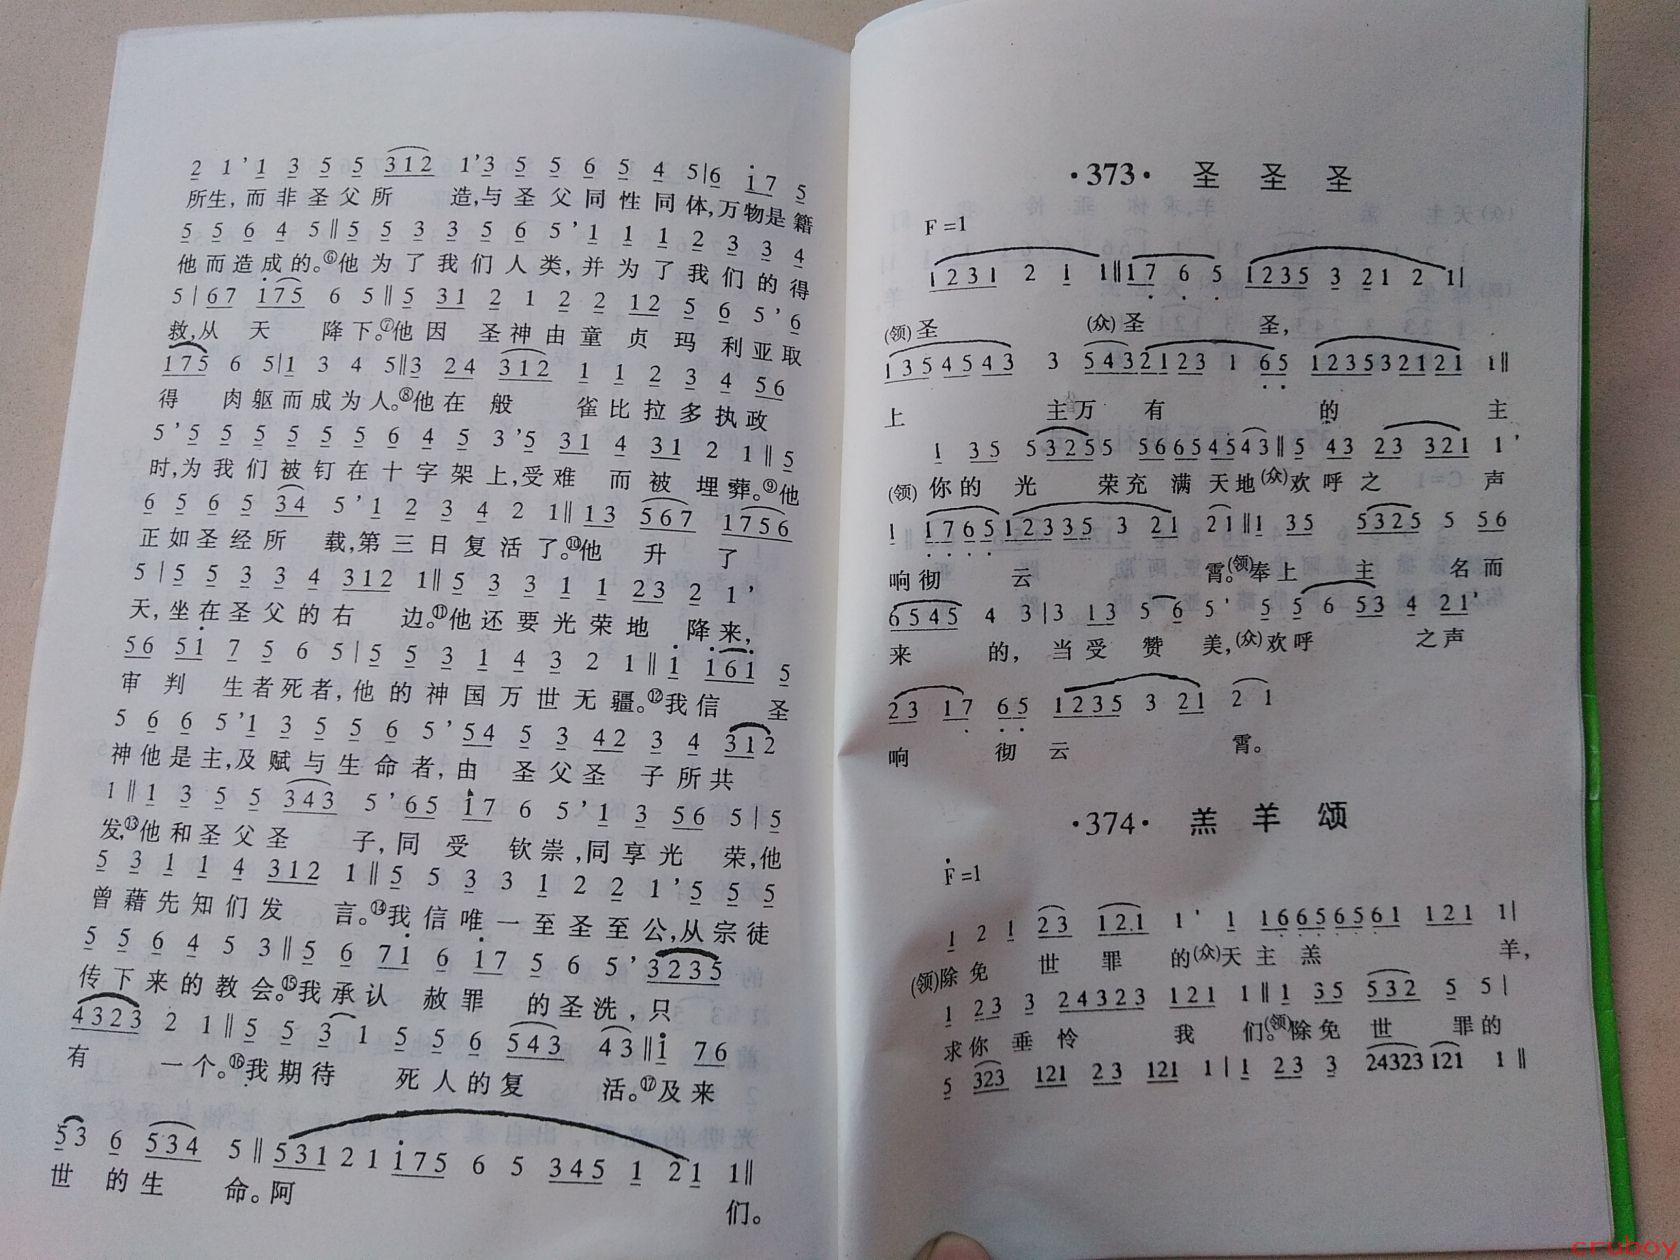 2 1 ' 1 3 5 5 312 1 ' 3 5 5 6 5 4 5 | 6 i7 5
所生,而非圣父所 造,与圣父同性同体,万物是籍
5 5 6 4 5 ‖ 5 5 3 3 5 6 5 ' 1 1 1 2 3 3 4
他而造成的。⑥他为了我们人类,并为了我们的得
5 | 67 i75 6 5 ‖ 5 31 2 1 2 2 12 5 6 5 ' 6
救,从 天 降下。⑦他因 圣神由童贞玛利亚取
175 6 5 | 1 3 4 5 ‖ 3 24 312 1 1 2 3 4 56
得 肉躯而成为人。⑧他在般 雀比拉多执政
5 ' 5 5 5 5 5 5 6 4 5 3 ' 5 31 4 31 2 1 ‖ 5
时,为我们被钉在十字架上,受难 而被埋葬。⑨他
6 5 6 5 34 5 ' 1 2 3 4 2 1 ‖ 13 567 1756
正如圣经所 载,第三日复活了。⑩他 升 了
5 | 5 5 3 3 4 312 1 ‖ 5 3 3 1 1 23 2 1 '
天,坐在圣父的右 边。⑪他还要光荣地 降来,
56 5i 7 5 6 5 | 5 5 3 1 4 3 2 1 ‖ i i6i 5
审判 生者死者,他的神国万世无疆。⑫我信 圣
5 6 6 5 ' 1 3 5 5 6 5 ' 54 5 3 42 3 4 312
神他是主,及赋与生命者,由 圣父圣 子所共
1 ‖ 1 3 5 5 343 5 ' 65 i7 6 5 ' 1 3 56 5 | 5
发,⑬他和圣父圣 子,同受 钦崇,同享光 荣,他
5 3 1 1 4 312 1 ‖ 5 5 3 3 1 2 2 1 ' 5 5 5
曾藉先知们发 言。⑭我信唯一至圣至公,从宗徒
5 5 6 4 5 3 ‖ 5 6 7i 6 i7 5 6 5 ' 3235
传下来的教会。⑮我承认 赦罪 的圣洗,只
4323 2 1 ‖ 5 5 3 1 5 5 6 543 43 ‖ i 76
有 一个。⑯我期待 死人的复 活。⑰及来
53 6 534 5 ‖ 531 2 1 i75 6 5 345 1 21 1 ‖
世 的生 命。阿 们。
·373· 圣 圣 圣
F=1
1231 2 1 1 ‖ 17 6 5 1235 3 21 2 1 |
(领)圣 (众)圣 圣,
1354543 3 5432123 1 65 123532121 1 ‖
上 主万 有 的 主
1 35 5 3255 56654543 ‖ 5 43 23 321 1 '
(领)你的 光 荣充 满 天地(众)欢呼之 声
1 1765 12335 3 21 21 ‖ 1 35 5325 5 56
响彻 云 霄。(领)奉上 主 名而
6545 4 3 | 3 13 56 5 ' 5 5 6 53 4 21 '
来 的, 当受 赞 美,(众)欢呼 之声
23 17 65 1235 3 21 2 1
响 彻 云 霄。
·374· 羔 羊 颂
F=1
1 2 1 23 121 1 ' 1 16656561 121 1 |
(领)除免 世 罪 的(众)天主羔 羊,
1 23 3 24323 121 1 ‖ 1 35 532 5 5 |
求你 垂 怜 我 们。(领)除免 世 罪的
5 323 121 23 121 1 | 1 23 3 24323 121 1 ‖
cruboy